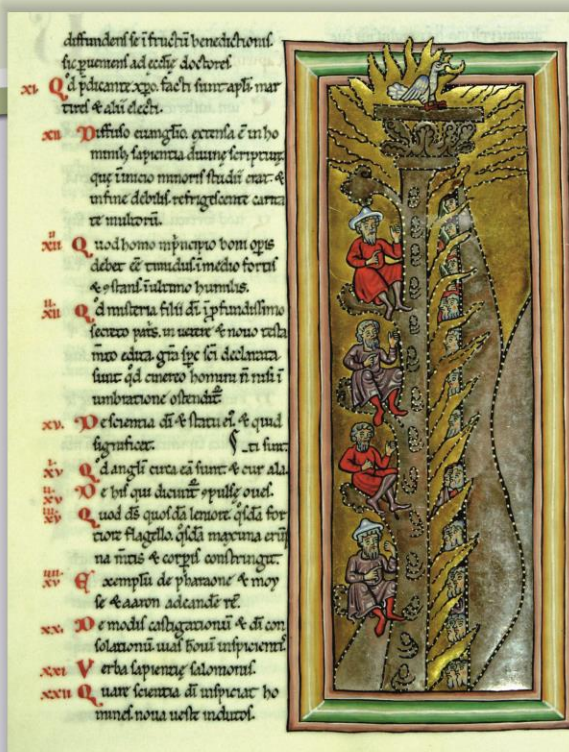 diffundens se ī fructū benedictionis.
xi. Qd p̄dicante xpō. facti sunt apłi. mar
tires & alii electi.
xii Diffuso euanglio. extensa ē in ho
minib; sapientia diuine scripture.
que ī inicio minoris studii erat. &
in fine debilis. refrigescente carita
te multorū.
xii Quod homo in p̄ncipio boni opis
debet cē timidus. ī medio fortis
& ꝯstans. ī ultimo humilis.
xii Qd misteria filii dī. ī p̄fundissimo
secreto patis. in uetere & nouo testa
mto edita. gr̄a spc sc̄i declarata
umbratione ostendit̄
xv. De scientia dī & statu ei. & quid
significet. ti sunt.
xv Qd angli circa eā sunt. & cur ala
xv De his qui dicunt̄ ꝯpulse oues.
xv Quod ds quosdā leniore. qsdā for
tiore flagello. qsdā maxima erūp
na mtis & corpis constringit.
xv Exemplū de pharaone & moy
se & aaron ad eandē rē.
xx. De modis castigationū & dī con
solationū
xxi Verba sapientię salomonis.
xxii Quare scientia dī inspiciat ho
mines noua ueste indutos.